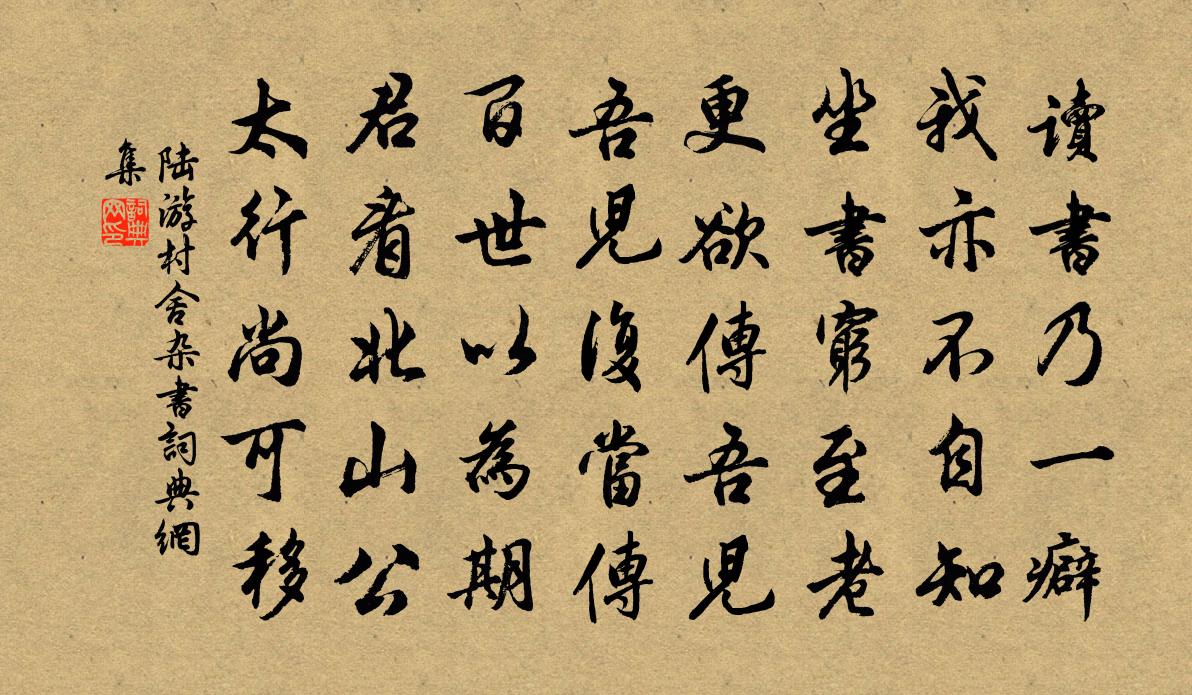 讀書乃一癖
我亦不自知
坐書窮至老
更欲傳吾児
吾児復當傳
百世以為期
君看北山公
太行尚可移
陆游村舍杂書詞典網
集
詞典
网印